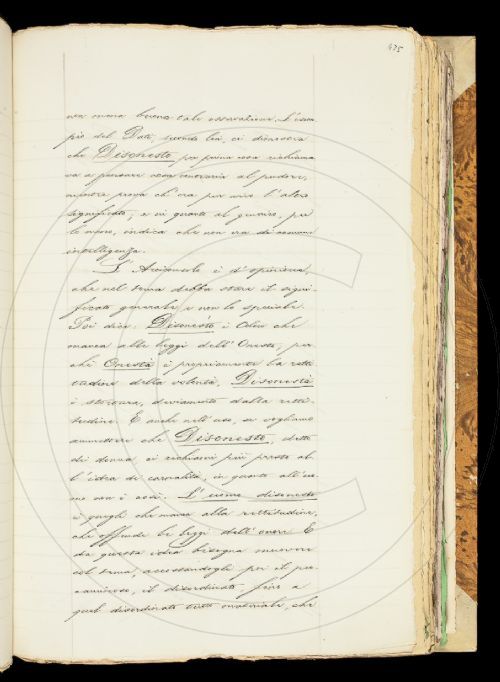 475
non mena buona tale osservazione. L'esem-
pio del Dati, secondo lui, ci dimostra
che Disonesto per prima cosa richiama
va a pensare cosa contraria al pudore,
mentre prova ch'era pur vivo l'altro
significato; e in quanto al giuniore, per
lo meno, indica che non era di comune
intelligenza.
L' è d'opinione,
che nel tema debba stare il signi-
ficato generale, e non lo speciale.
Poi dice: Disonesto è Colui che
manca alle leggi dell'Onesto; per
chè Onestà è propriamente la retti
tudine della volontà, Disonestà
è stortura, deviamento dalla retti-
tudine. E anche nell'uso, se vogliamo
ammettere che Disonesto, detto
di donna, ci richiami più presto al-
l'idea di carnalità, in quanto all'uo-
mo non è così. L'uomo disonesto
è quegli che manca alla rettitudine,
che offende le leggi dell'onore. E
da questa idea bisogna muovere
col tema, accostandogli per il pec
caminoso, il disordinato fino a
quel disordinato tutto materiale, che